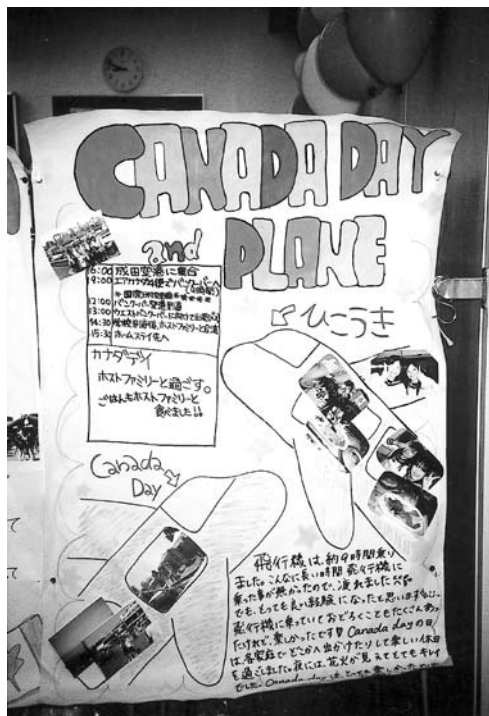 CANADA DAY
and PLANE
16:00 成田空港に集合
19:00 エアカナダ4便でバンクーバーへ
12:00 バンクーバー空港到着
13:00 ウエストバンクーバーに向けて
14:30 ホストファミリーと
15:30 ホームステイ先へ
カナダデイ
ホストファミリーと過ごす。
ごはんもホストファミリーと
食べました!!
ひこうき
Canada
Day
飛行機は、約9時間乗り
ました。こんなに長い時間飛行機に
乗った事が無かったので、疲れました
でも、とっても良い経験になったと思います。
飛行機に乗っていておどろくこともたくさんあっ
たけれど、楽しかったです Canada dayの日
は各家庭でどこか出かけたりして楽しい休日
を過ごしました。夜には、花火が見えてとてもキレイ
でした。Canada dayは、とっても楽しかったです